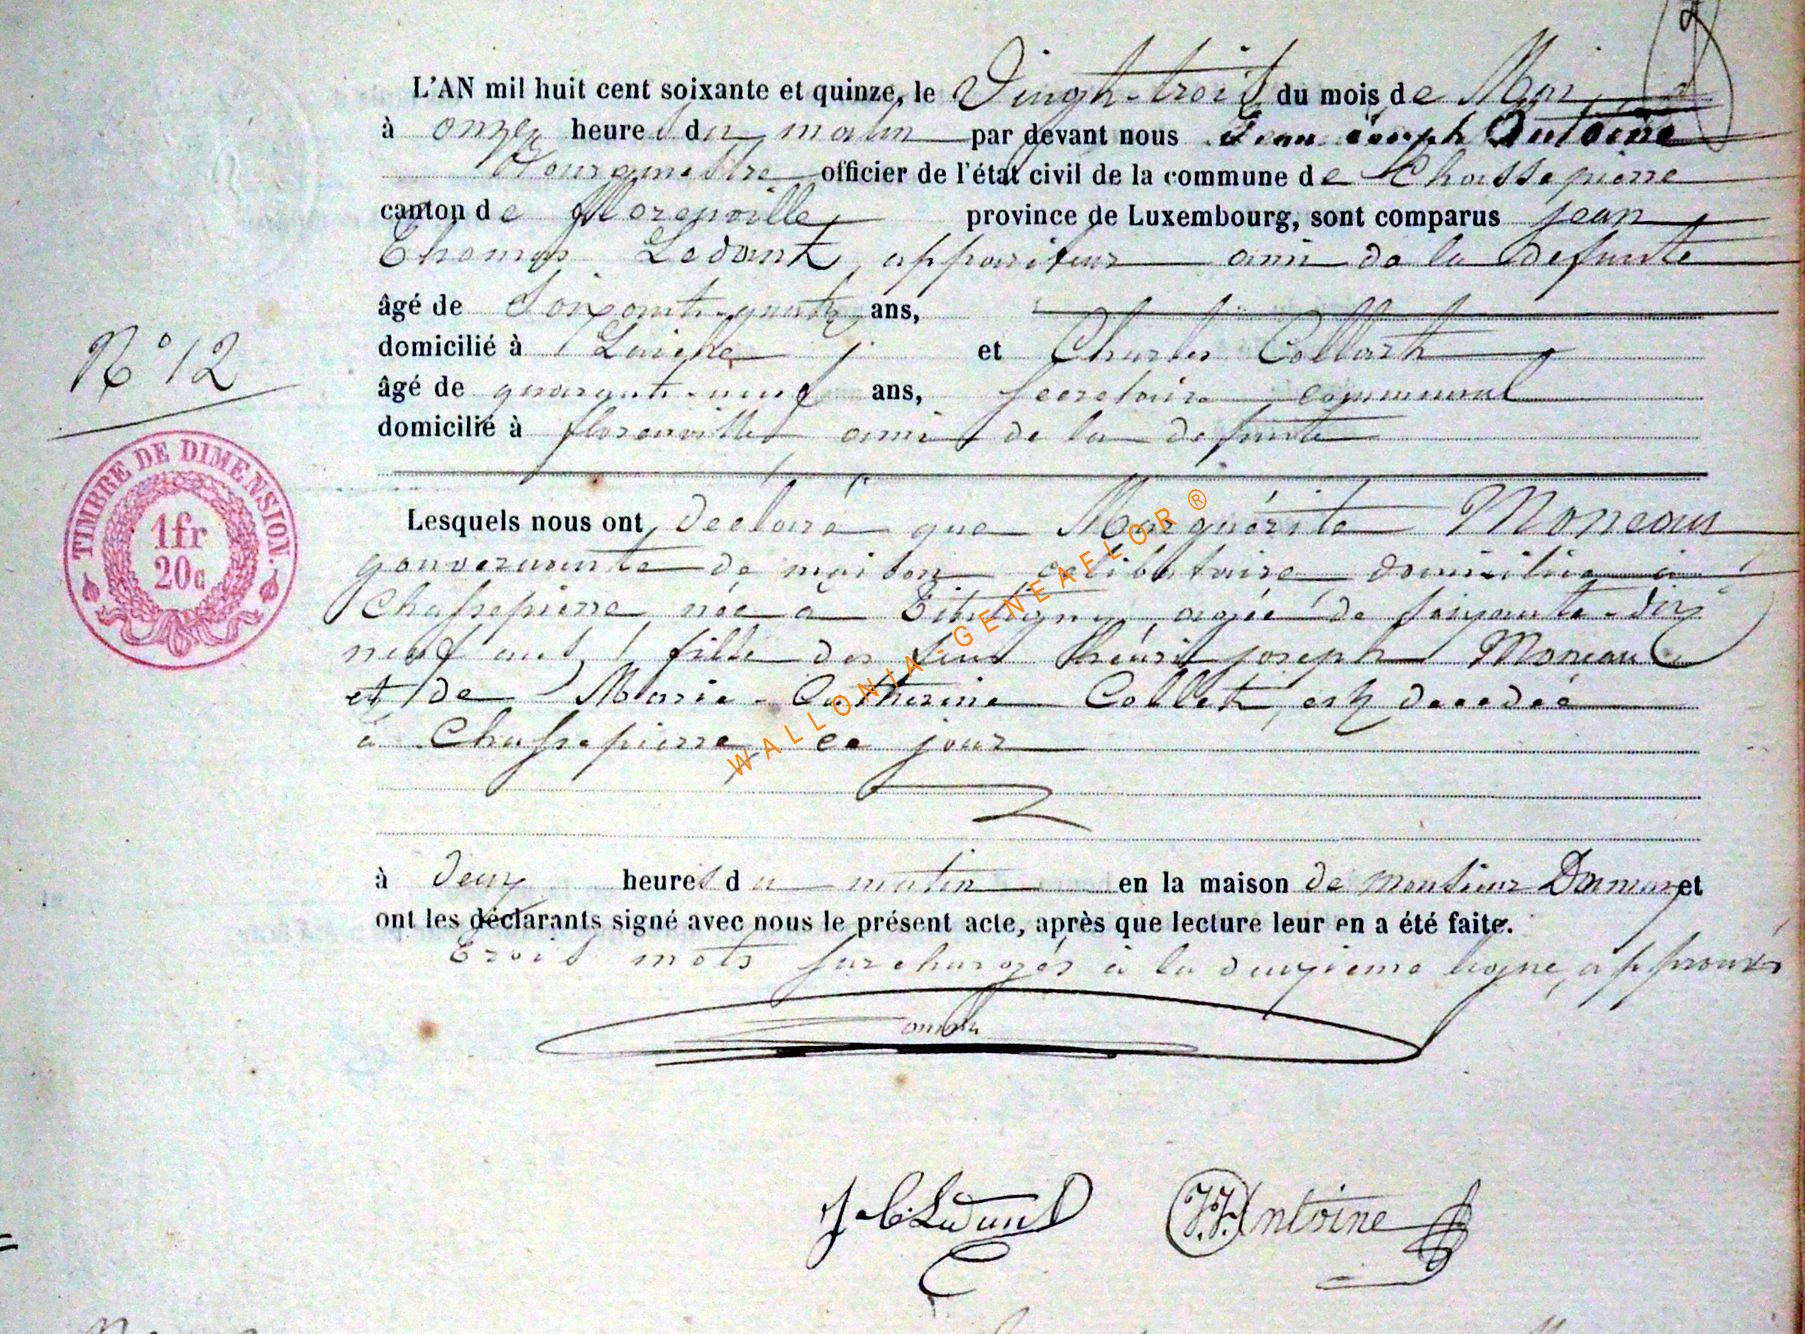 L'AN mil huit cent soixante et quinze, le Vingt-trois du mois de Mai
à onze heures du matin par devant nous Jean Joseph Antoine
Bourgmestre officier de l'état civil de la commune de Chassepierre
canton de florenville province de Luxembourg, sont comparus jean
Thomas Ledant, appariteur ami de la defunte
âgé de Soixante-quatre ans,
domicilié à Laiche et Charles Collart
âgé de quarante-neuf ans, secretaire communal
domicilié à florenville ami de la defunte
N° 12
TIMBRE DE DIMENSION
1fr
20c
Lesquels nous ont déclaré que Marguérite Moneaux
gouvernante de maison celibataire domiciliée à
Chassepierre, née à Titaigne, agée de soixante-dix
neuf ans, fille des feus joseph Moneaux
et de Marie-Catherine Collet, est decedée
à Chassepierre, ce jour
à deux heures du matin en la maison de monsieur et
ont les déclarants signé avec nous le présent acte, après que lecture leur en a été faite.
Trois mots surchargés à la deuxième ligne, approuvés
WALLONIA-GENEAFLOR ®
J. T. Ledant J.J. Antoine